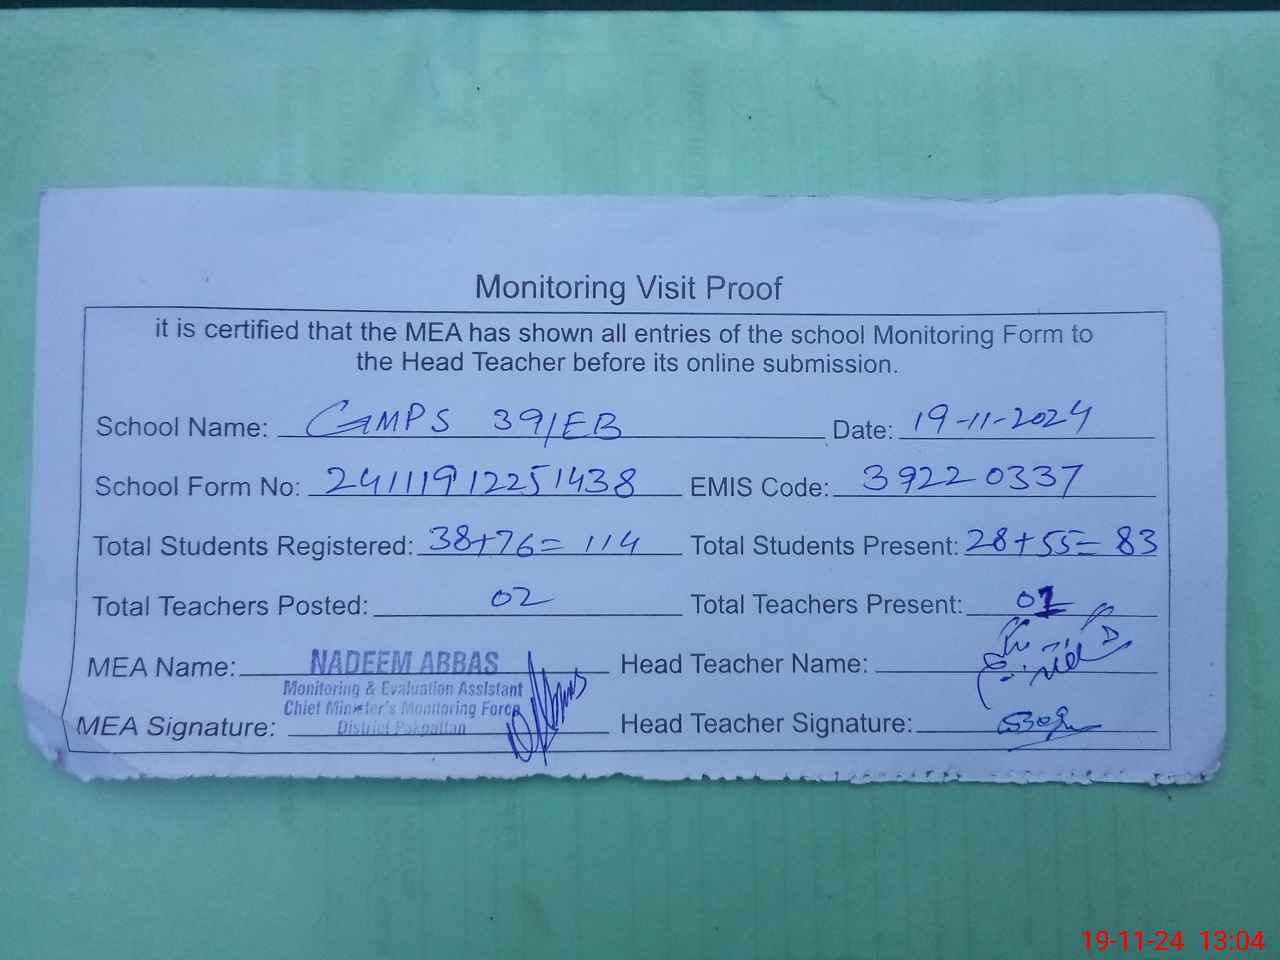 Monitoring Visit Proof
it is certified that the MEA has shown all entries of the school Monitoring Form to
the Head Teacher before its online submission.
School Name: GMPS 39/EB Date: 19-11-2024
School Form No: 24111912251438 EMIS Code: 39220337
Total Students Registered: 38+76= 114 Total Students Present: 28+55= 83
Total Teachers Posted: 02 Total Teachers Present: 01
MEA Name: NADEEM ABBAS Head Teacher Name:
Monitoring & Evaluation Assistant
Chief Minister's Monitoring Force
MEA Signature: District Pakpattan Head Teacher Signature:
19-11-24 13:04